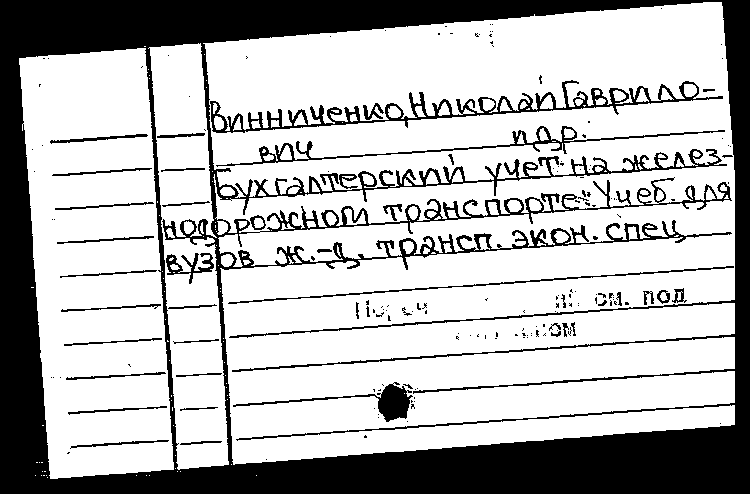 Винниченко, Николай Гаврило-
вич и др.
Бухгалтерский учет на желез-
нодорожном транспорте: Учеб. для
вузов ж.-д. трансп. экон. спец.
см. под